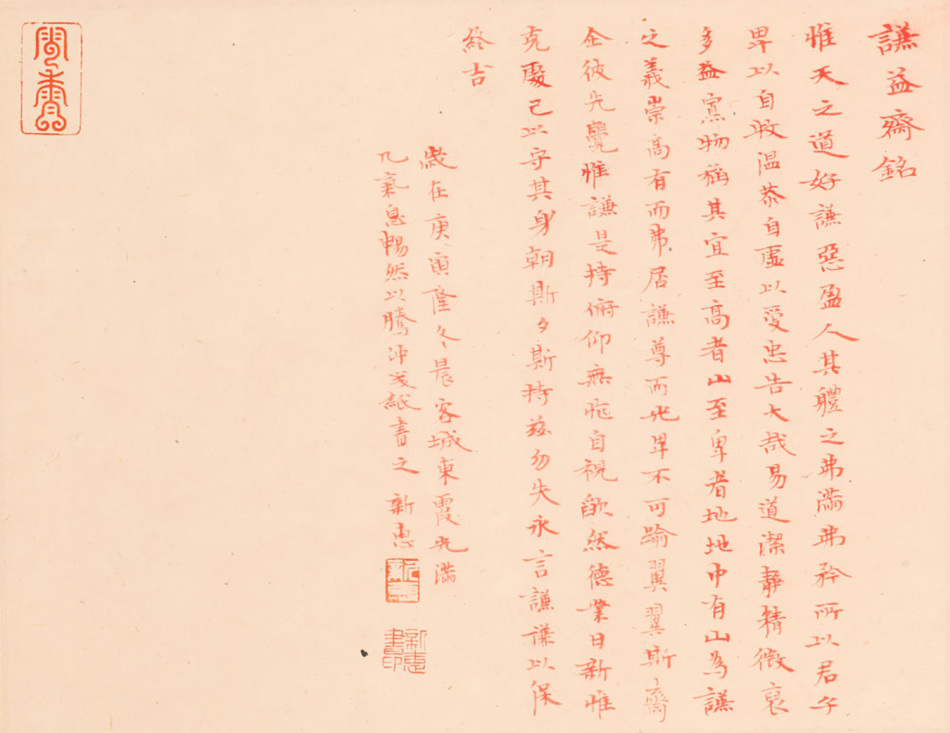 謙益齋銘
惟天之道好謙惡盈人其體之弗滿弗矜所以君子
卑以自牧温恭自虛以愛忠告大哉易道潔靜精微裒
多益寡物稱其宜至高者山至卑者地地中有山為謙
之義崇高有而弗居謙尊而光卑不可踰翼翼斯齋
企彼先覺惟謙是持俯仰無怍自視欿然德業日新惟
克處己以守其身朝斯夕斯持茲勿失永言謙謙以保
終吉
歲在庚寅隆冬晨客城東霞光滿
几氣息暢然以騰沖紙書之 新惠
新惠書印